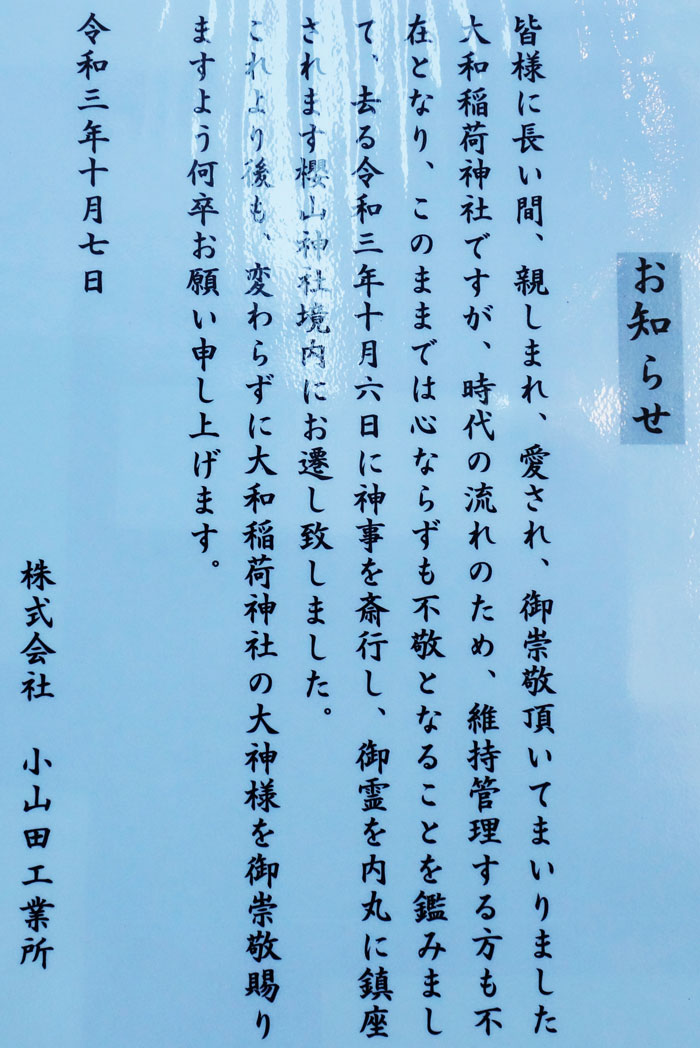 お知らせ
皆様に長い間、親しまれ、愛され、御崇敬頂いてまいりました
大和稲荷神社ですが、時代の流れのため、維持管理する方も不
在となり、このままでは心ならずも不敬となることを鑑みまし
て、去る令和三年十月六日に神事を斎行し、御霊を内丸に鎮座
されます櫻山神社境内にお遷し致しました。
これより後も、変わらずに大和稲荷神社の大神様を御崇敬賜り
ますよう何卒お願い申し上げます。
令和三年十月七日
株式会社　小山田工業所